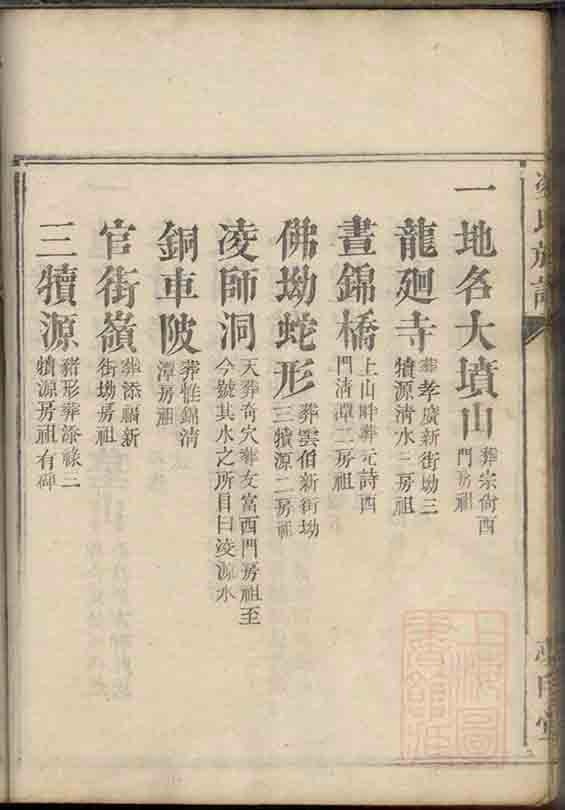 一地名大墳山葬宗尚西門房祖
龍廻寺葬孝廣新街坳三犢源清水二房祖
晝錦橋上山畔葬元詩西門清潭二房祖
佛坳蛇形葬雲伯新街坳三犢源二房祖
凌師洞天葬奇穴葬友富西門房祖至今號其水之所目曰凌源水
銅車陂葬惟錦清潭房祖
官街嶺葬添福新街坳房祖
三犢源豬形葬添祿二犢源房祖有碑
上海圖書館藏